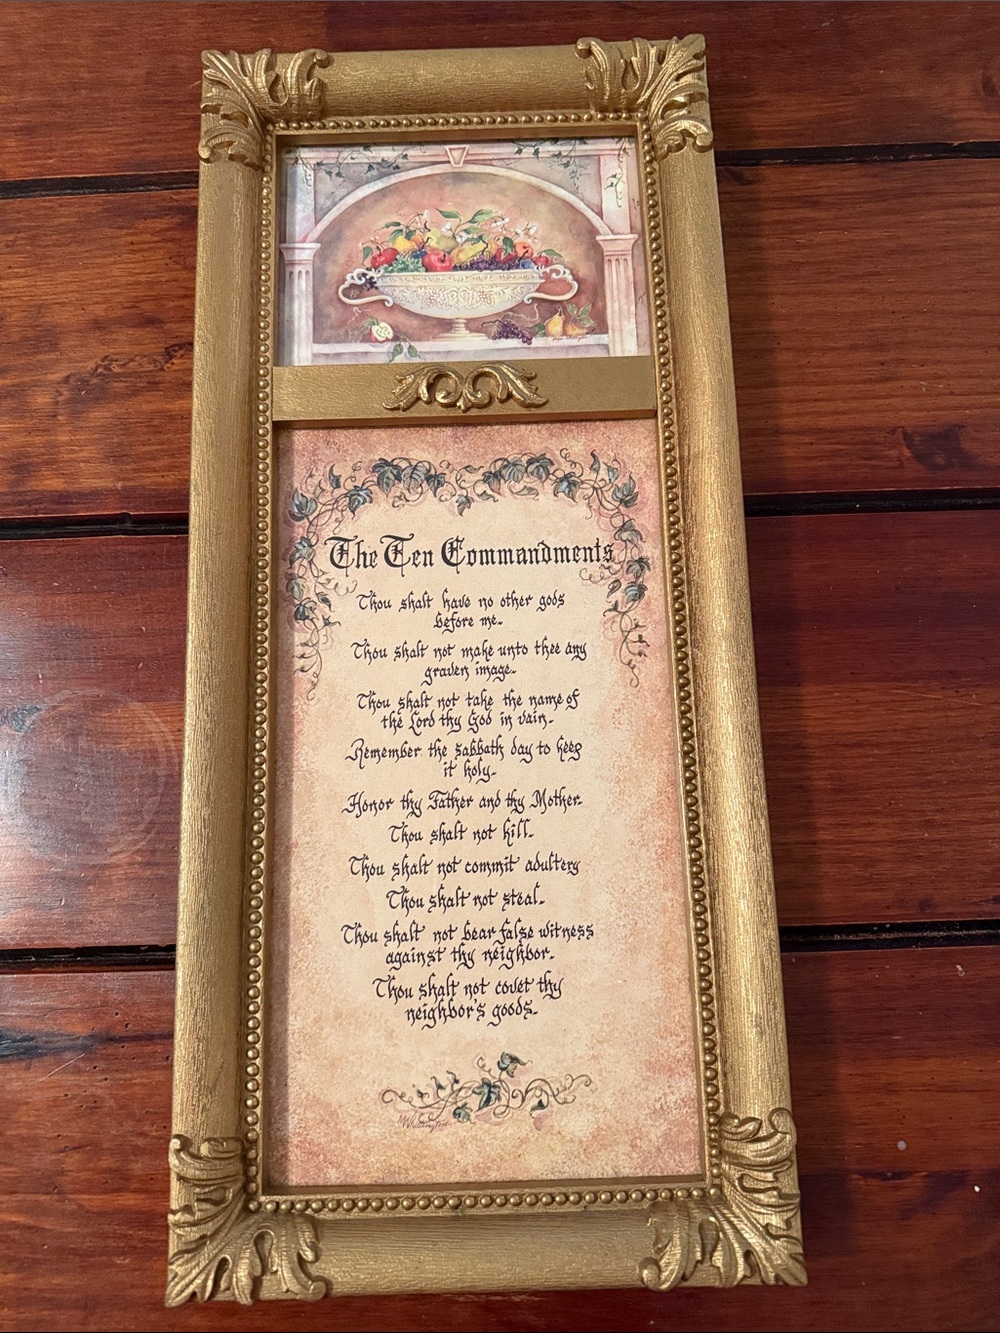 The Ten Commandments
Thou shalt have no other gods
before me.
Thou shalt not make unto thee any
graven image.
Thou shalt not take the name of
the Lord thy God in vain.
Remember the sabbath day to keep
it holy.
Honor thy Father and thy Mother.
Thou shalt not kill.
Thou shalt not commit adultery
Thou shalt not steal.
Thou shalt not bear false witness
against thy neighbor.
Thou shalt not covet thy
neighbor's goods.